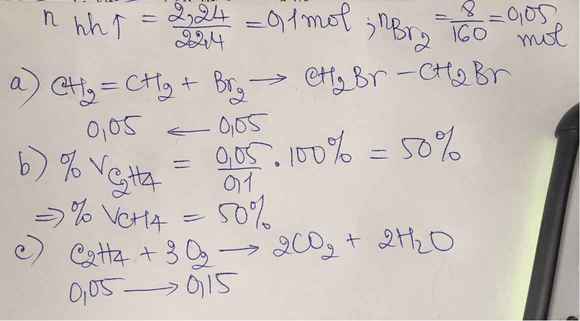 n hh↑ = 2,24/22,4 = 0,1 mol ; nBr₂ = 8/160 = 0,05 mol
a) CH₂ = CH₂ + Br₂ → CH₂Br − CH₂Br
0,05 ← 0,05
b) % V C₂H₄ = 0,05/0,1 . 100% = 50%
⇒ % VCH₄ = 50%
c) C₂H₄ + 3O₂ → 2CO₂ + 2H₂O
0,05 → 0,15